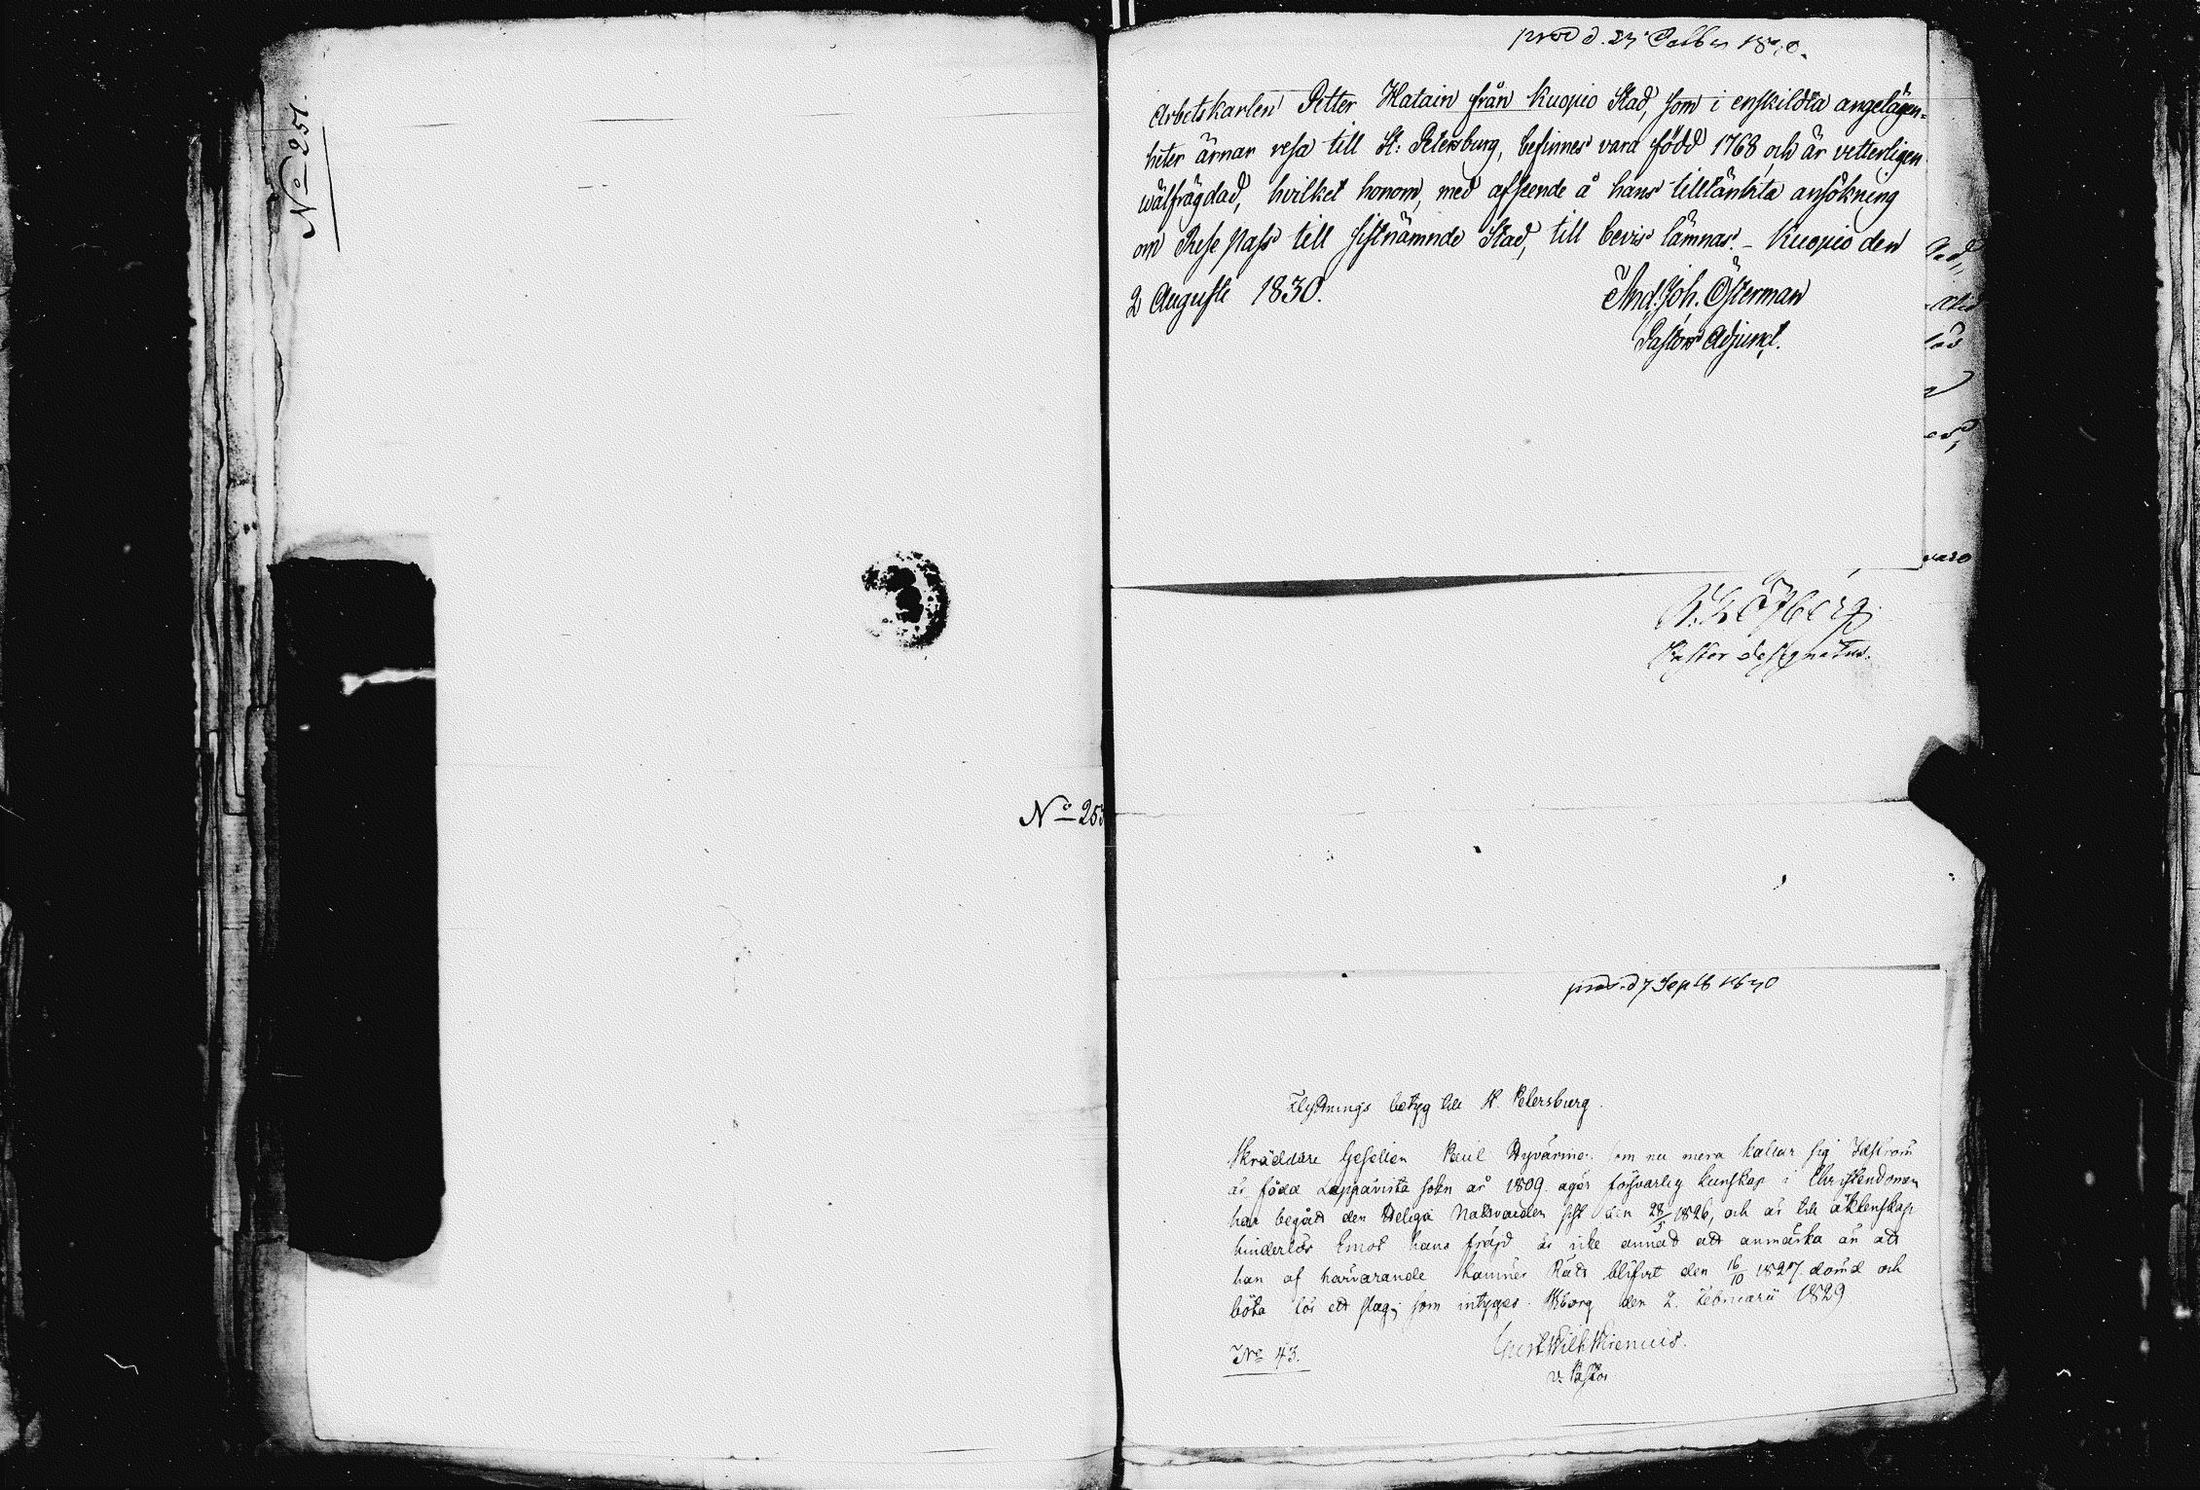 No 251.
No 253
d. 23 Octber 1830.
Arbetskarlen Petter Hatain från Kuopio Stad, som i enskildta angelägen-
heter ärnar resa till St: Petersburg, befinnes vara född 1768 och är vetterligen
wälfrägdad, hvilket honom, med afseende å hans tilltänkta ansökning
om Rese Pass till sistnämnde Stad, till bevis lämnas. - Kuopio den
2 Augusti 1830.
And. Joh. Österman
Pastors Adjunct.
Pastor designatus.
d 7 Septb 1830
Flyttnings betyg till St. Petersburg.
Skräddare Gesellen Paul Hyvärine som nu mera kallar sig
är född Lappävista sokn år 1809. äger försvarlig kunskap i Christendomen
har begått den Heliga Nattvarden sist den 28/5 1826, och är till äktenskap
hinderlös Emot hans fräjd är icke annat att anmärka än att
han af härvarande Kämners Rätt blifvit den 16/10 1827 dömd
böta för ett slag; som intyges. Wiborg den 2. Februarii 1829
No 43.
v. Pastor